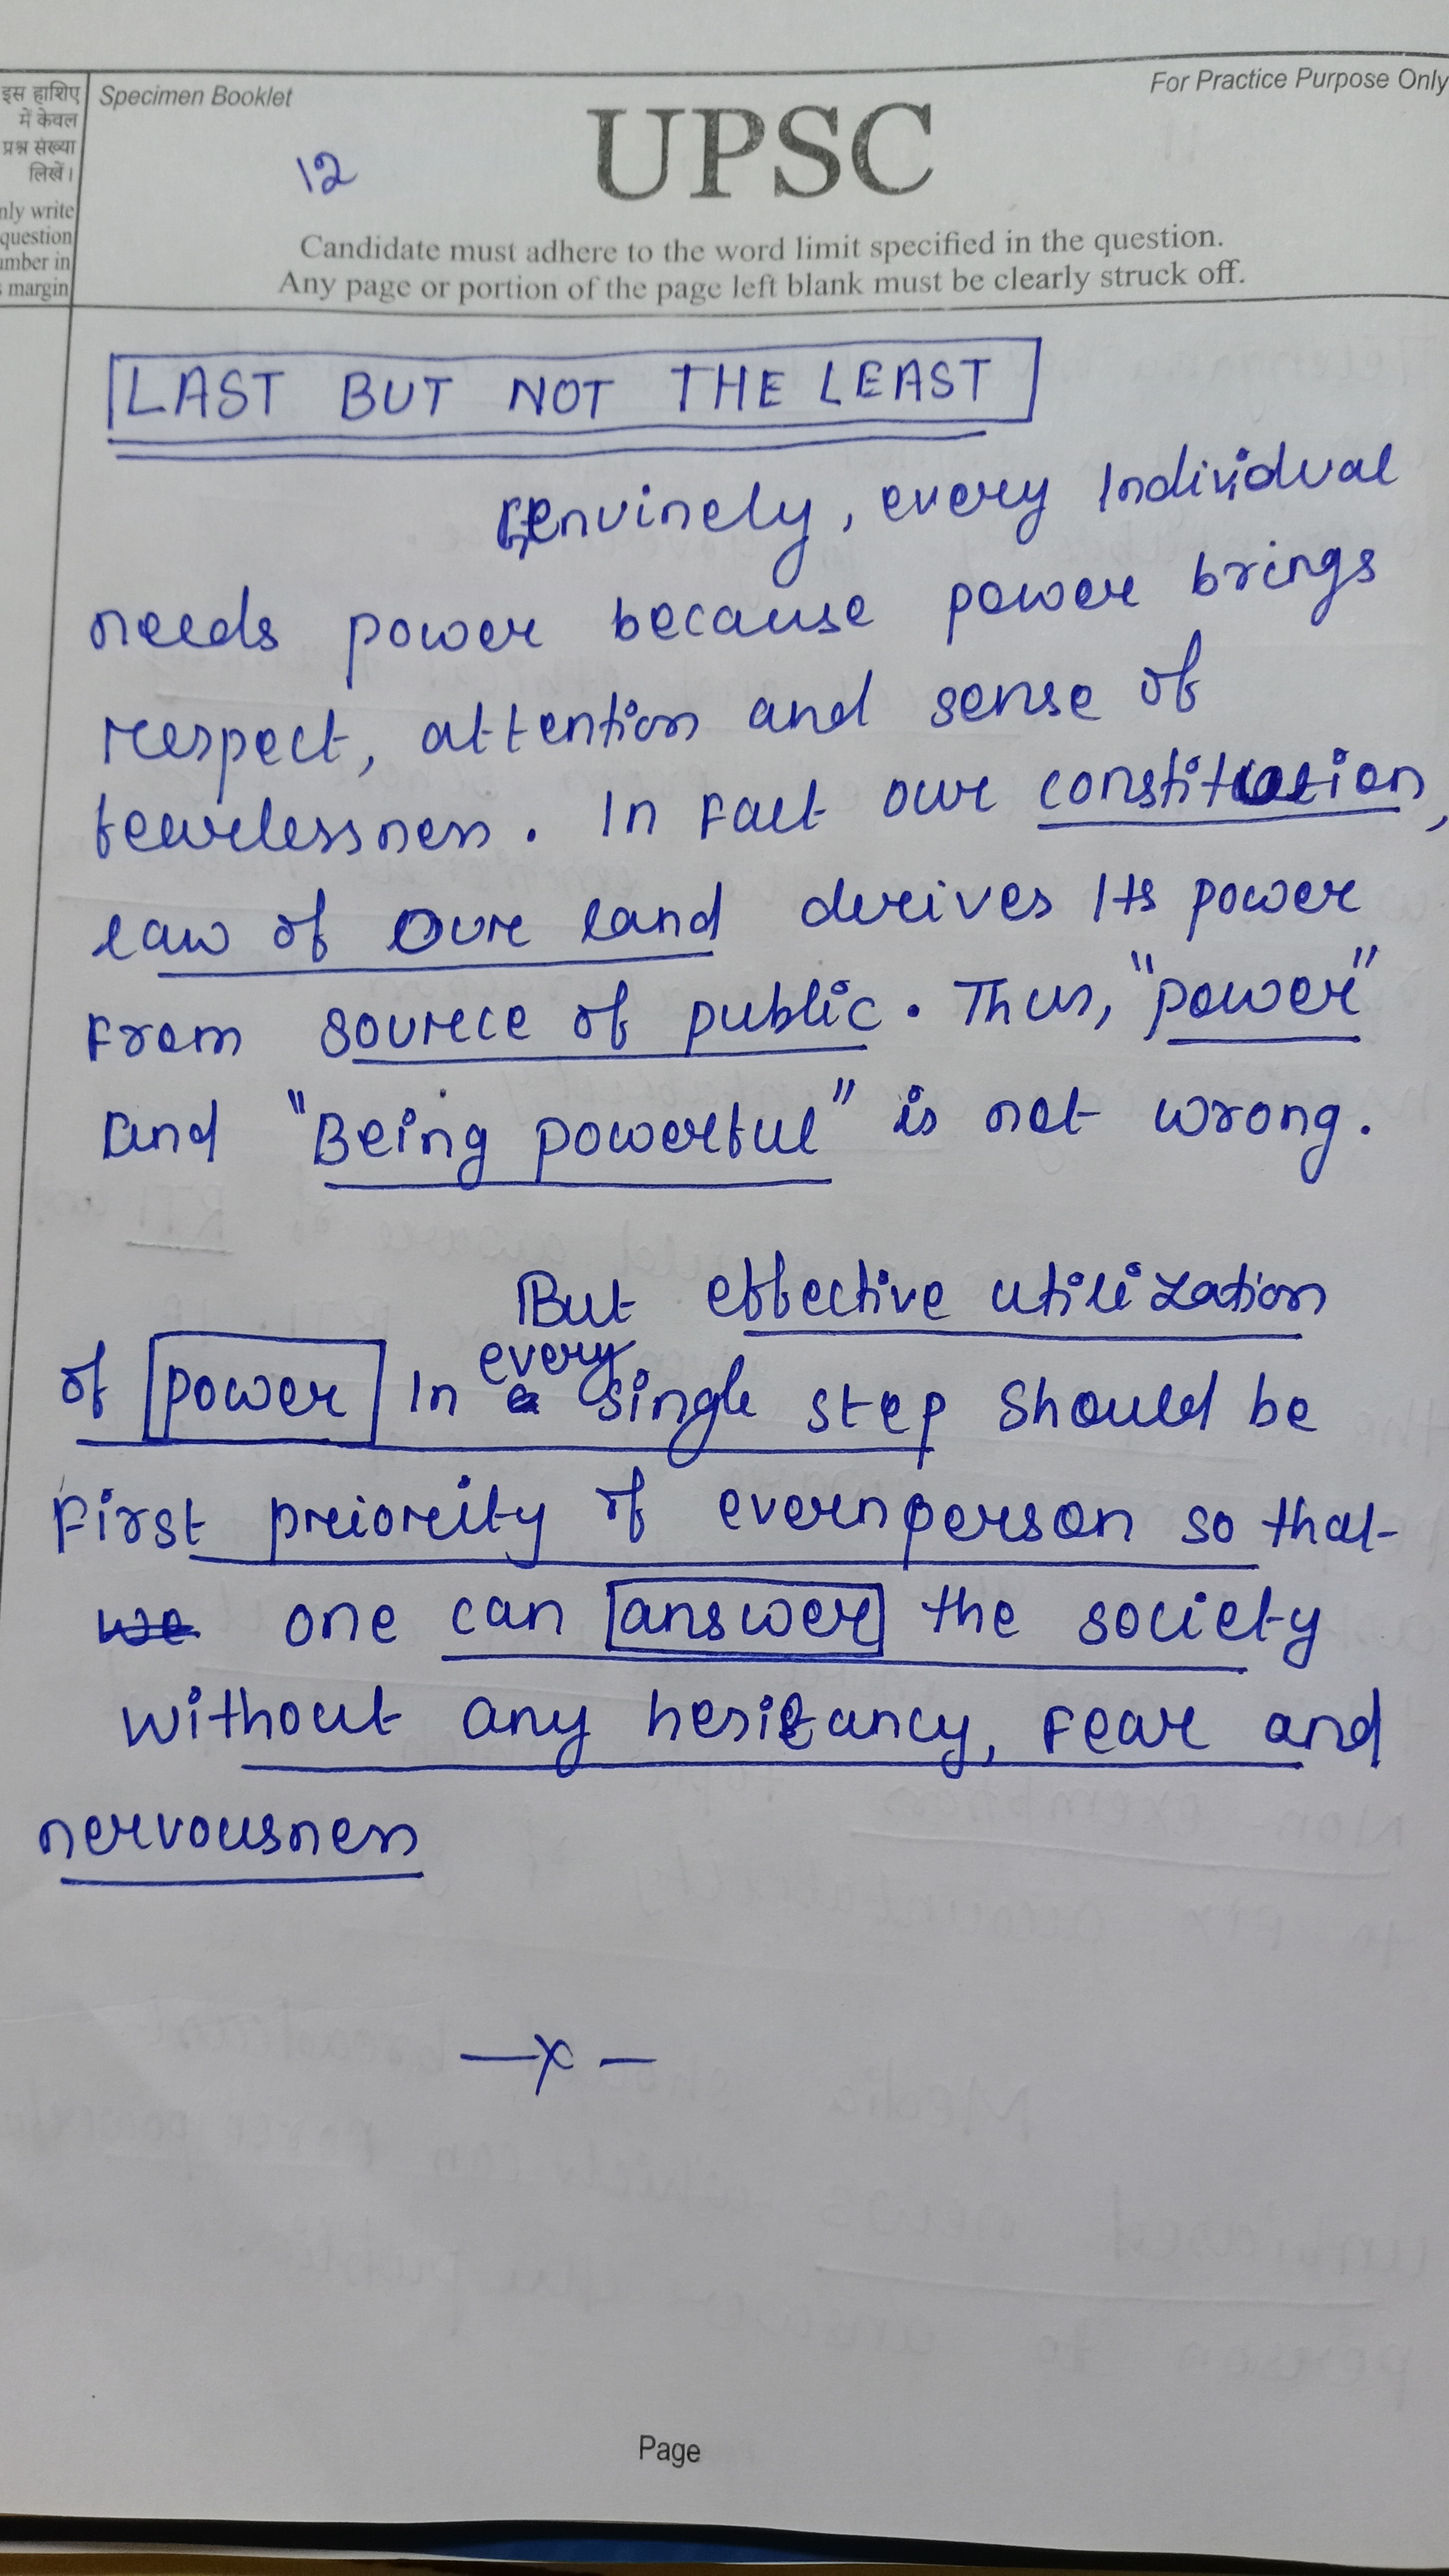 इस हाशिए
में केवल
प्रश्न संख्या
लिखें।
nly write
question
umber in
s margin
Specimen Booklet
For Practice Purpose Only
12
UPSC
Candidate must adhere to the word limit specified in the question.
Any page or portion of the page left blank must be clearly struck off.
LAST BUT NOT THE LEAST
Genuinely, every Individual
needs power because power brings
respect, attention and sense of
fearlessness. In Fact our constitution,
law of Our land derives Its power
From source of public. Thus, "power"
and "Being powerful" is not wrong.
But effective utilization
of power In every single step should be
First priority of every person so that
we one can answer the society
without any hesitancy, Fear and
nervousness
—x—
Page